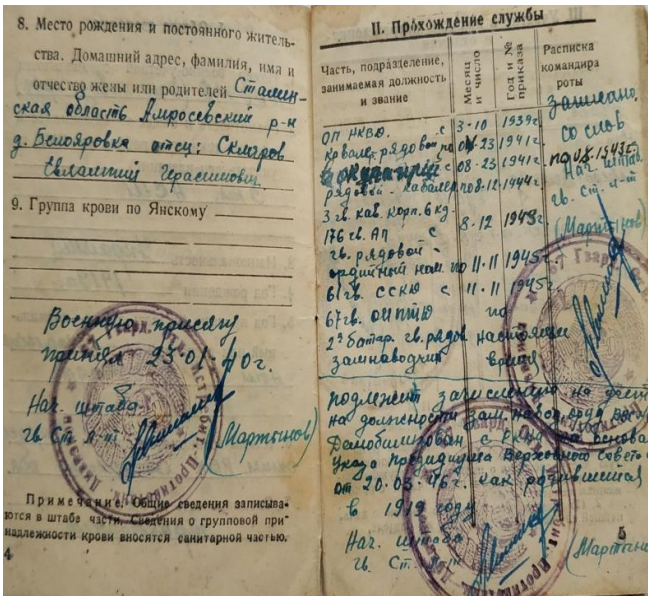 8. Место рождения и постоянного житель-
ства. Домашний адрес, фамилия, имя и
отчество жены или родителей Сталин-
ская область Амросевский р-н
д. Белояровка отец: Скляров
Евлампий Герасимович.
9. Группа крови по Янскому
Военную присягу
принял 23.01.40г.
Нач. штаба
гв. Ст. л-т (Мартынов)
Примечание. Общие сведения записыва-
ются в штабе части. Сведения о групповой при-
надлежности крови вносятся санитарной частью.
4
II. Прохождение службы
Часть, подразделение,
занимаемая должность
и звание
Месяц
и число
Год и №
приказа
Расписка
командира
роты
ОП НКВД. с 3-10 1939г
кавалер. рядовой по 08-23 1941г.
с 08-23 1941г.
рядовой - кавалер по 8-12 1944г
3 гв. кав. корп. 6 кд.
176 гв. АП с 8-12 1943г
гв. рядовой -
по 11-11 1945г.
61 гв. ССКЮ с 11-11 1945г
67 гв. ОИПТД по
2я батар. гв. рядов настоящи
замнаводчик время
записано
со слов
Нач. штаб.
гв. Ст. л-т
(Мартынов)
подлежит зачислению на
на должности зам. навод. оруд.
Демобилизован с
Указа Президиума Верховного Совета
от 20.03.46г. как родившийся
в 1919 году
Нач. штаба
гв. Ст. л-т (Мартын
5